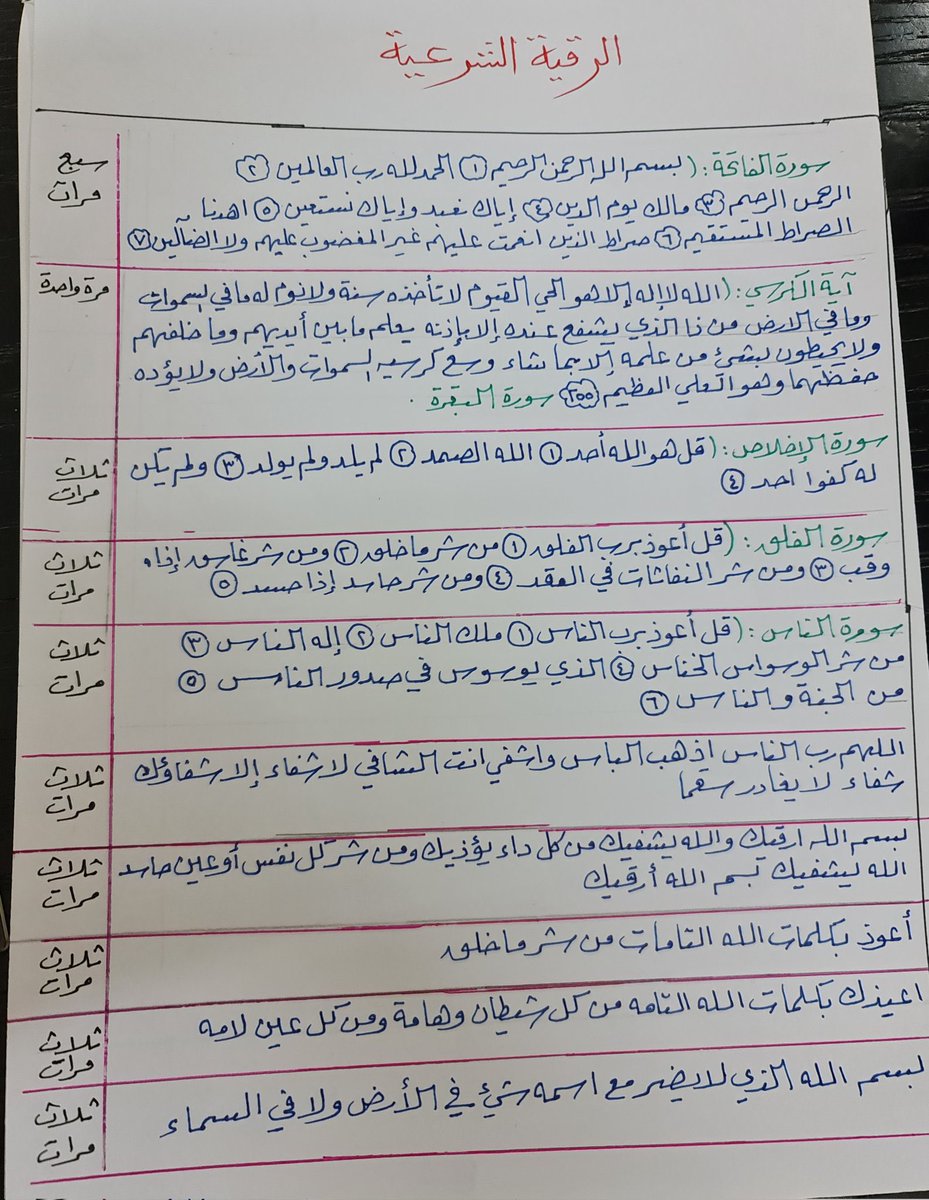 الرقية الشرعية
سورة الفاتحة: (بسم الله الرحمن الرحيم ١ الحمد لله رب العالمين ٢
سبع
مرات
الرحمن الرحيم ٣ مالك يوم الدين ٤ إياك نعبد وإياك نستعين ٥ اهدنا
الصراط المستقيم ٦ صراط الذين انعمت عليهم غير المغضوب عليهم ولا الضآلين ٧
آية الكرسي: (الله لا إله إلا هو الحي القيوم لا تأخذه سنة ولا نوم له ما في السموات
مرة واحدة
وما في الارض من ذا الذي يشفع عنده إلا بإذنه يعلم ما بين أيديهم وما خلفهم
ولا يحيطون بشيء من علمه إلا بما شاء وسع كرسيه السموات والأرض ولا يؤده
حفظهما وهو العلي العظيم ٢٥٥ سورة البقرة.
سورة الإخلاص: (قل هو الله أحد ١ الله الصمد ٢ لم يلد ولم يولد ٣ ولم يكن
له كفوا احد ٤
ثلاث
مرات
سورة الفلق: (قل أعوذ برب الفلق ١ من شر ما خلق ٢ ومن شر غاسق إذا
وقب ٣ ومن شر النفاثات في العقد ٤ ومن شر حاسد إذا حسد ٥
ثلاث
مرات
سورة الناس: (قل أعوذ برب الناس ١ ملك الناس ٢ إله الناس ٣
من شر الوسواس الخناس ٤ الذي يوسوس في صدور الناس ٥
من الجنة والناس ٦
ثلاث
مرات
اللهم رب الناس اذهب الباس واشفي انت الشافي لا شفاء إلا شفاؤك
شفاء لا يغادر سقما
ثلاث
مرات
بسم الله ارقيك والله يشفيك من كل داء يؤذيك ومن شر كل نفس أو عين حاسد
الله يشفيك بسم الله أرقيك
ثلاث
مرات
أعوذ بكلمات الله التامات من شر ما خلق
ثلاث
مرات
اعيذك بكلمات الله التامه من كل شيطان وهامة ومن كل عين لامه
ثلاث
مرات
بسم الله الذي لا يضر مع اسمه شيء في الأرض ولا في السماء
ثلاث
مرات